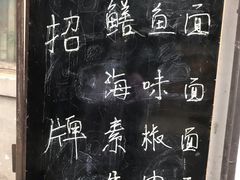 招牌
鳝鱼面
海味面
素椒面